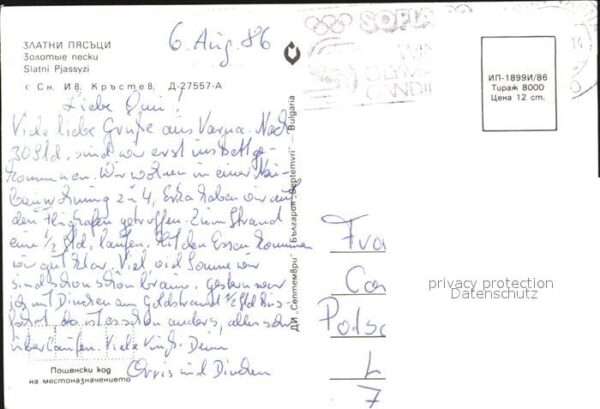 ЗЛАТНИ ПЯСЪЦИ
Золотые пески
Slatni Pjassyzi
Сн. Ив. Кръстев. Д-27557-А
6. Aug. 86
SOFIA
OLYM
CANDI
ИП-1899И/86
Тираж 8000
Цена 12 ст.
Liebe Omi!
Viele liebe Grüße aus Varna. Nach
30 Std. sind wir erst ins Bett ge-
kommen. Wir wohnen in einer Neu-
bauwohnung zu 4, haben wir auf
den Flughafen getroffen. Zum Strand
eine 1/2 Std. laufen. Mit den Essen kommen
wir gut klar. Viel Sonne wir
sind schon schön braun, gestern war
ich mit am Goldstrand 1/2 Std Bus-
fahrt, da ist es schon anders, alles sehr
überlaufen. Viele
und
ДИ „Септември" България Septemvri - Bulgaria
Пощенски код
на местоназначението
Fra
Ca
Potsc
L
7
privacy protection
Datenschutz